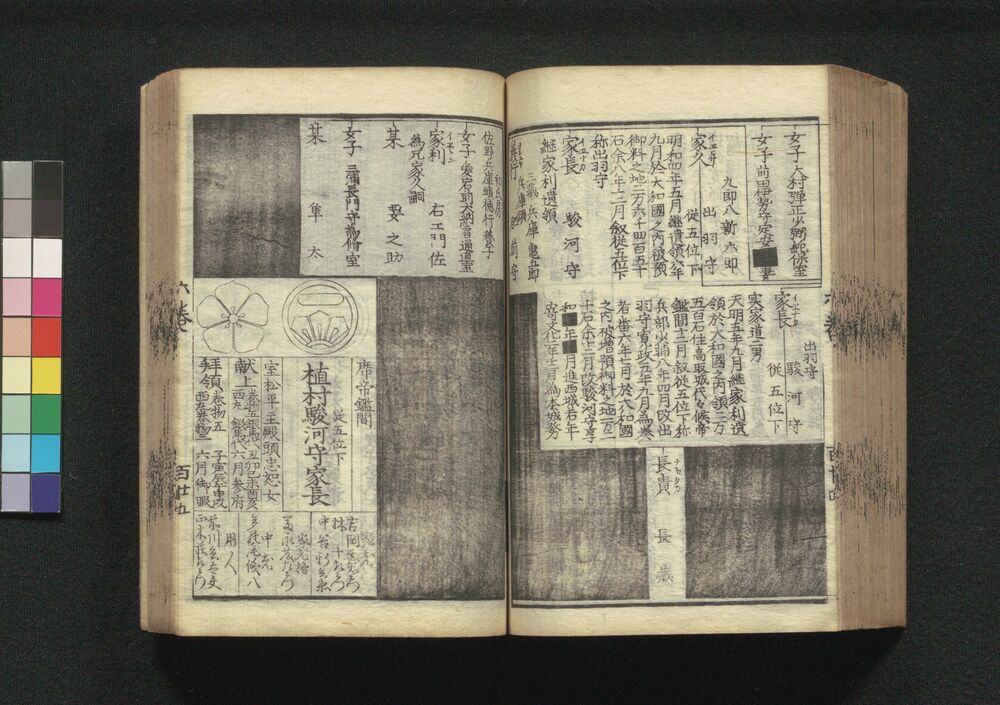 女子 大村弾正少弼純保室
女子 前田伊勢守定安■妻
九郎八 新六郎
家久 出羽守
従五位下
明和四年五月継遺領八年
九月於大和國之内被預
御料之地二万六千四百五十
石余八年十二月叙従五位下
称出羽守
家長 駿河守
継家利遺領
三蔵 兵庫 亀五郎
兵庫頭
佐野兵庫頭徳行養子
女子
家利 右エ門佐
為兄家久嗣
某 要之助
女子 三浦長門守為脩室
某 隼太
出羽守
家長 駿河守
従五位下
実家道三男
天明五年九月継家利遺
領於大和國之内領二万
五百石住高取城代々候帝
鑑間十二月叙従五位下称
兵部少輔八年四月改出
羽守寛政五年六月為奏
者番六年七月於大和國
之内被増預御料之地二万
十石余十二月改駿河守享
和■年■月進西城若年
寄文化二年十二月為本城務
長貴 長蔵
席帝鑑間
従五位下
植村駿河守家長
室松平主殿頭忠恕女
献上 巻物五 銀馬代 丑卯巳未酉亥
西丸 銀馬代 六月参府
拝領 巻物五 子寅辰午申戌
西丸巻物三 六月御暇
中老
用人
六巻
百廿四
六巻
百廿五